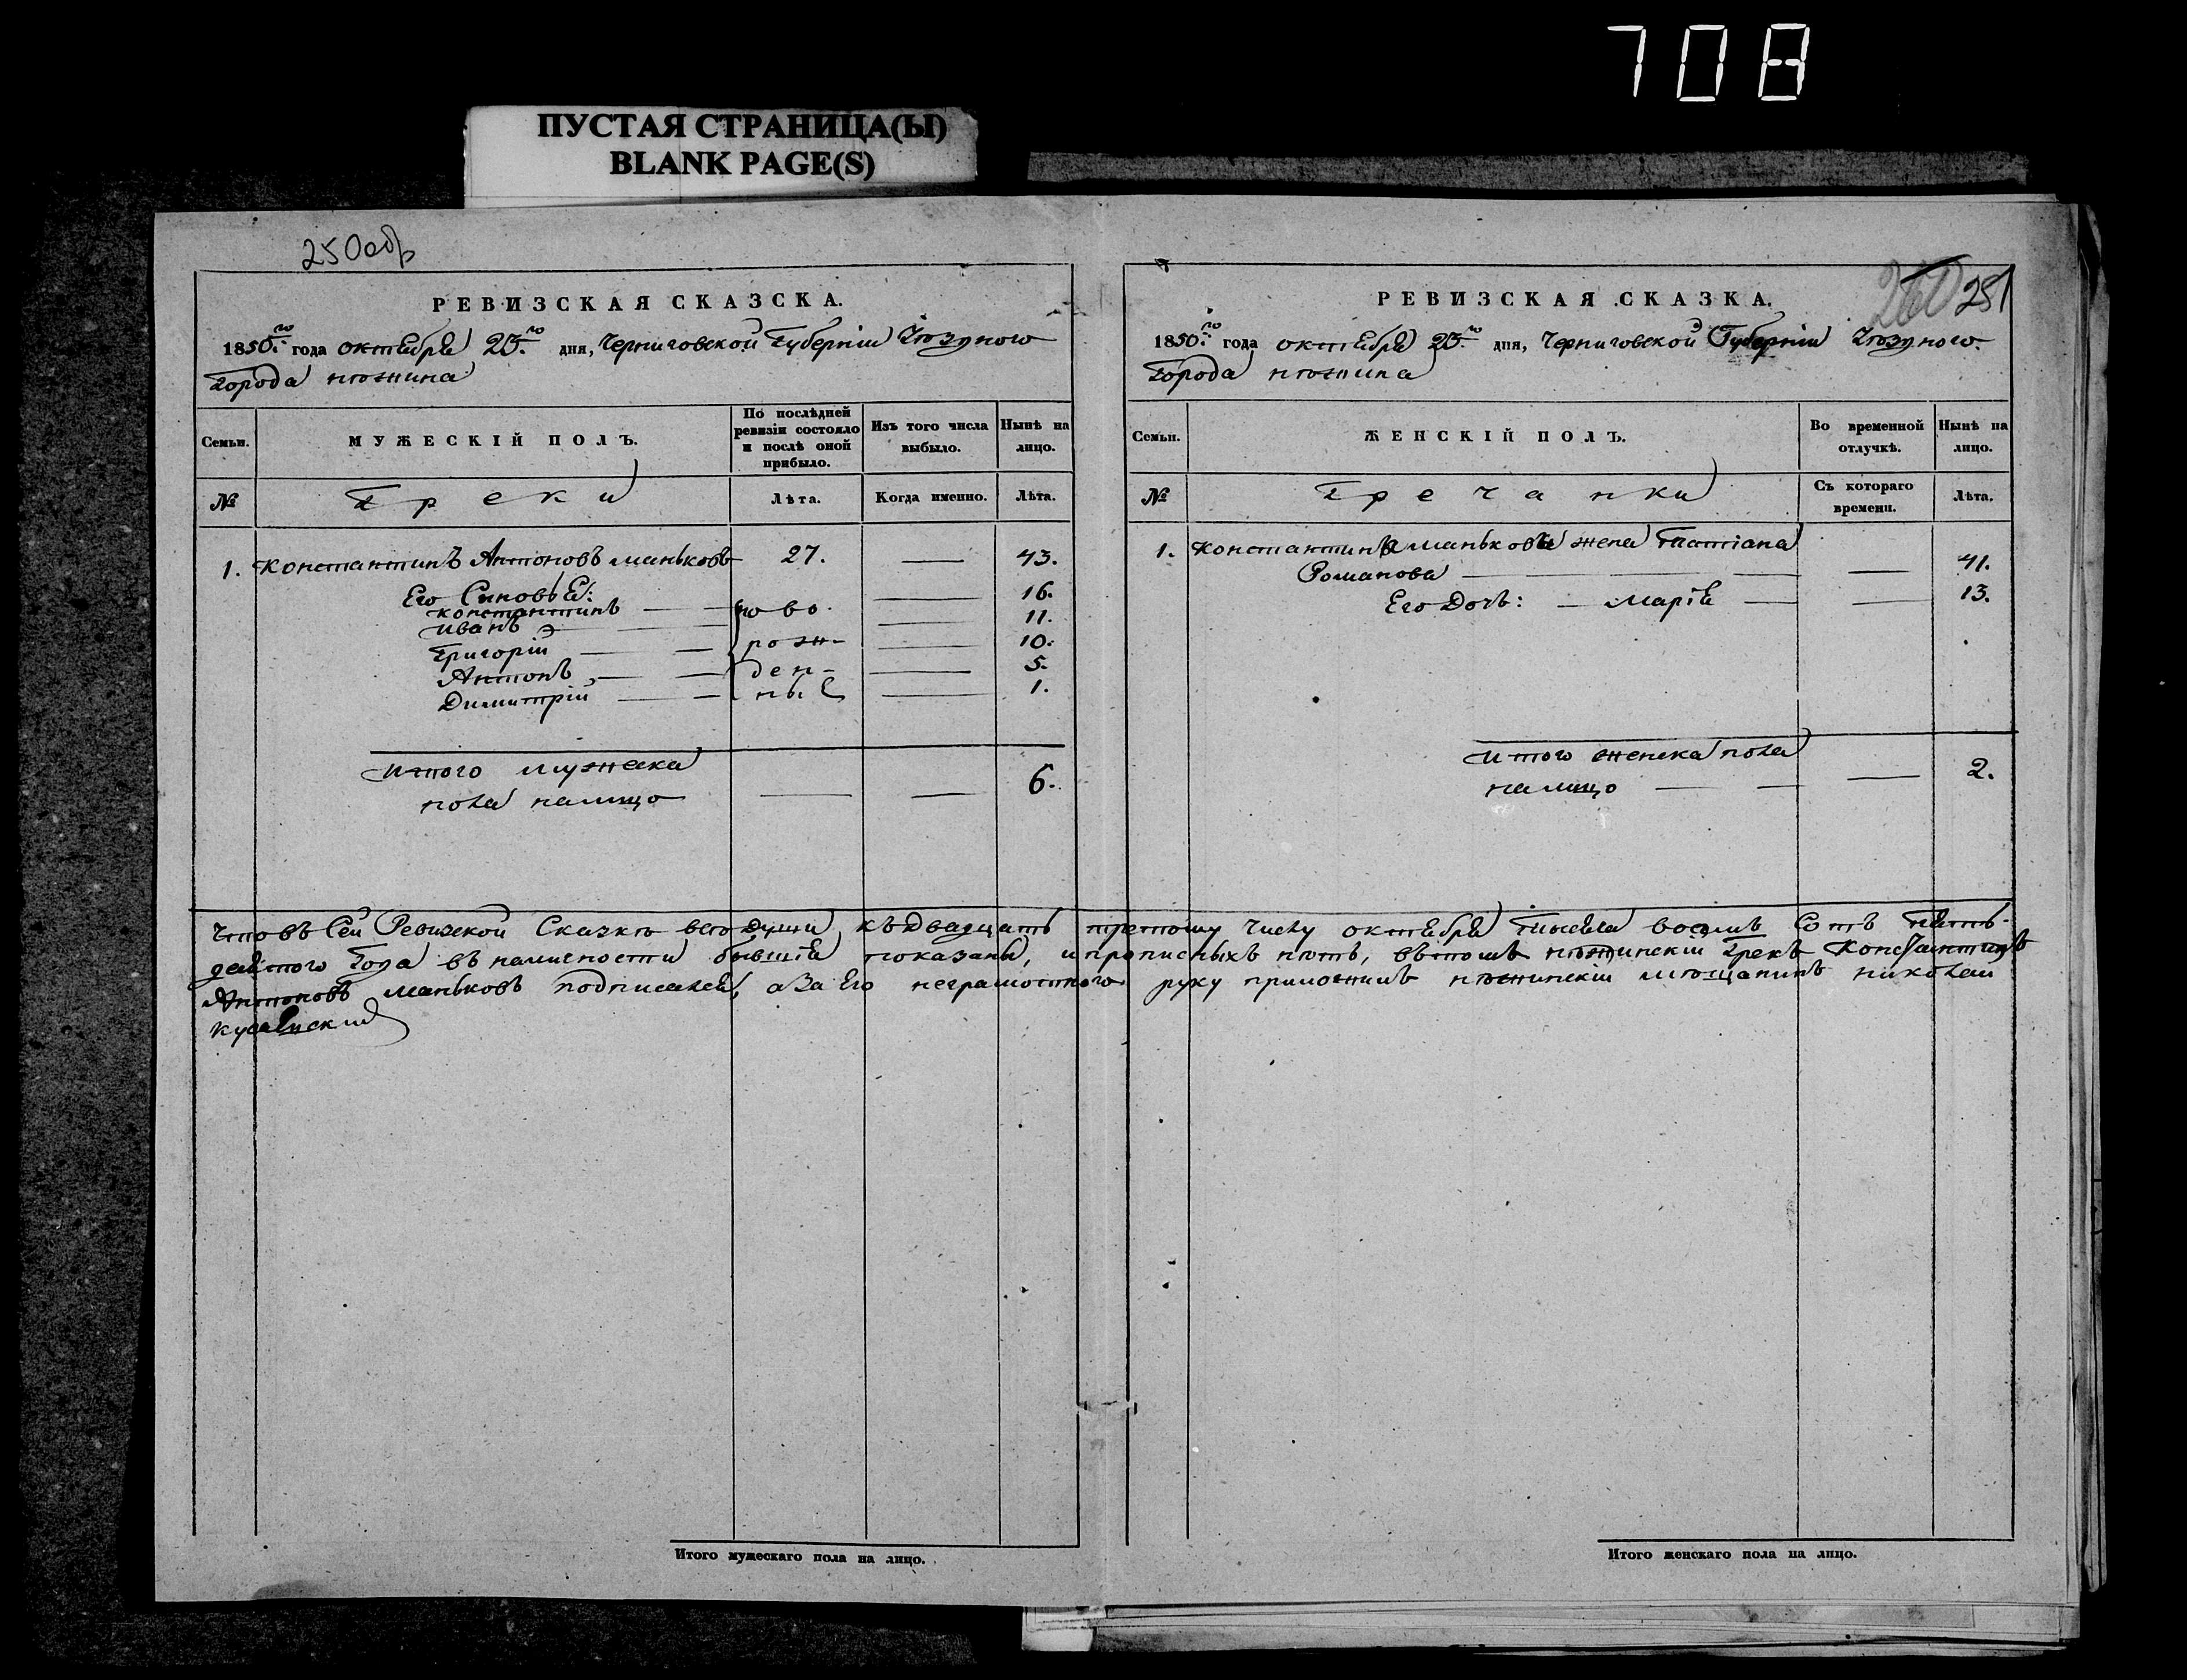 708
ПУСТАЯ СТРАНИЦА(Ы)
BLANK PAGE(S)
250 об
РЕВИЗСКАЯ СКАЗСКА.
1850.го года октября 23.го дня, Черниговской Губерніи уѣзднаго
города нѣжина
Семьи.
МУЖЕСКІЙ ПОЛЪ.
По послѣдней ревизіи состояло и послѣ оной прибыло.
Изъ того числа выбыло.
Нынѣ на лицо.
№
Греки
Лѣта.
Когда именно.
Лѣта.
1. Константинъ Антоновъ маньковъ 27. — 43.
Его Сыновья:
константинъ — ново — 16.
иванъ — — 11.
Григорій — рож- — 10.
Антонъ — ден- — 5.
Димитрій — ныя — 1.
Итого мужеска
пола налицо — — 6.
Итого мужескаго пола на лицо.
260 251
РЕВИЗСКАЯ СКАЗКА.
1850.го года октября 23.го дня, Черниговской Губерніи уѣзднаго
города нѣжина
Семьи.
ЖЕНСКІЙ ПОЛЪ.
Во временной отлучкѣ.
Нынѣ на лицо.
№
Гречанки
Съ котораго времени.
Лѣта.
1. Константина манькова жена Татіана
Романова — — 41.
Его Дочь: — Марія — — 13.
Итого женска пола
налицо — — 2.
Итого женскаго пола на лицо.
Что въ Сей Ревизской Сказкѣ все души къ Двадцать третьему числу октября тысяча восемъ Сотъ пять-
десятого Года въ наличности бывшія показаны, и прописныхъ нѣтъ, въ томъ нѣжинскій Грекъ Константинъ
Антоновъ маньковъ подписался, а За Его неграмотного руку приложилъ нѣжинскій мѣщанинъ николай